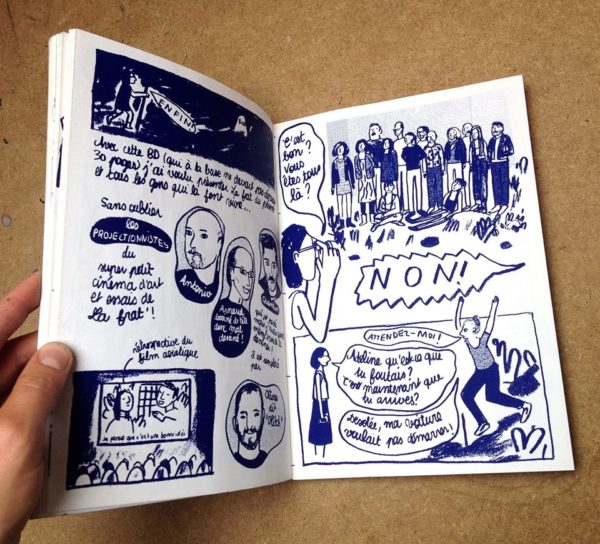 ENFIN
Avec cette BD (qui à la base ne devait pas dépasser
30 pages) j'ai voulu présenter La frat du
et tous les gens qui la font vivre...
Sans oublier
les
PROJECTIONNISTES
du
super petit
cinéma d'art
et essais de
La frat'!
Antonio
Arnaud
dessiné
donc mal
dessiné!
rétrospective du
film asiatique
Je pense que c'est une bonne idée
Olivier
dit
C'est
bon?
Vous
êtes tous
là?
NON!
ATTENDEZ-MOI!
Adeline qu'est-ce que
tu foutais?
C'est maintenant que
tu arrives?
Désolée, ma voiture
voulait pas démarrer!